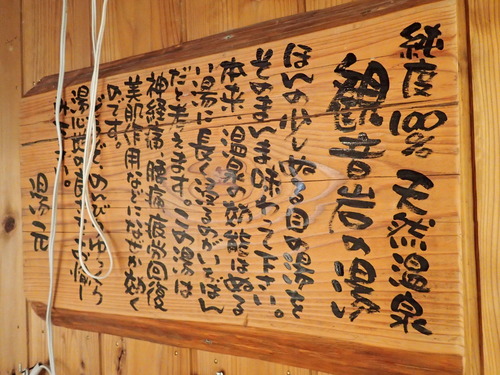 純度100% 天然温泉
観音岩の湯
ほんの少しぬる目の温泉を
そのまんま味わって下さい。
本来、温泉の効能はぬる
い湯に長く浸るのがいちばん
だと考えます。この湯は
神経痛 腰痛 疲労回復
美肌作用などになぜか効く
のです。
どうぞ